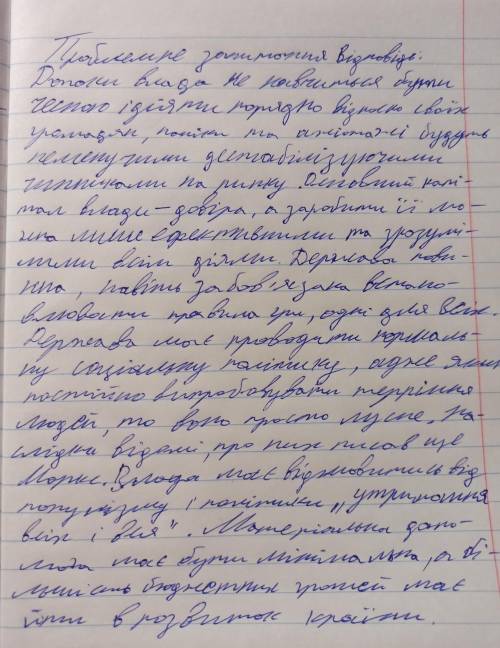 Проблемне запитання Відповідь.
Допоки влада не навчиться бути
чесною і діяти порядно відносно своїх
громадян, паніки та ажіотажі будуть
неминучими дестабілізуючими
чинниками на ринку. Основний капі-
тал влади - довіра, а заробити її мо-
жна лише ефективними та зрозумі-
лими всім діями. Держава пови-
нна, навіть забов'язана встано-
влювати правила гри, одні для всіх.
Держава має проводити нормаль-
ну соціальну політику, адже якщо
постійно випробовувати терпіння
людей, то воно просто лусне. На-
слідки відомі, про них писав ще
Маркс. Влада має відмовитись від
популізму і політики „утримання
всіх і вся". Матеріальна допо-
мога має бути мінімальна, а бі-
льшість бюджетних грошей має
йти в розвиток країни.